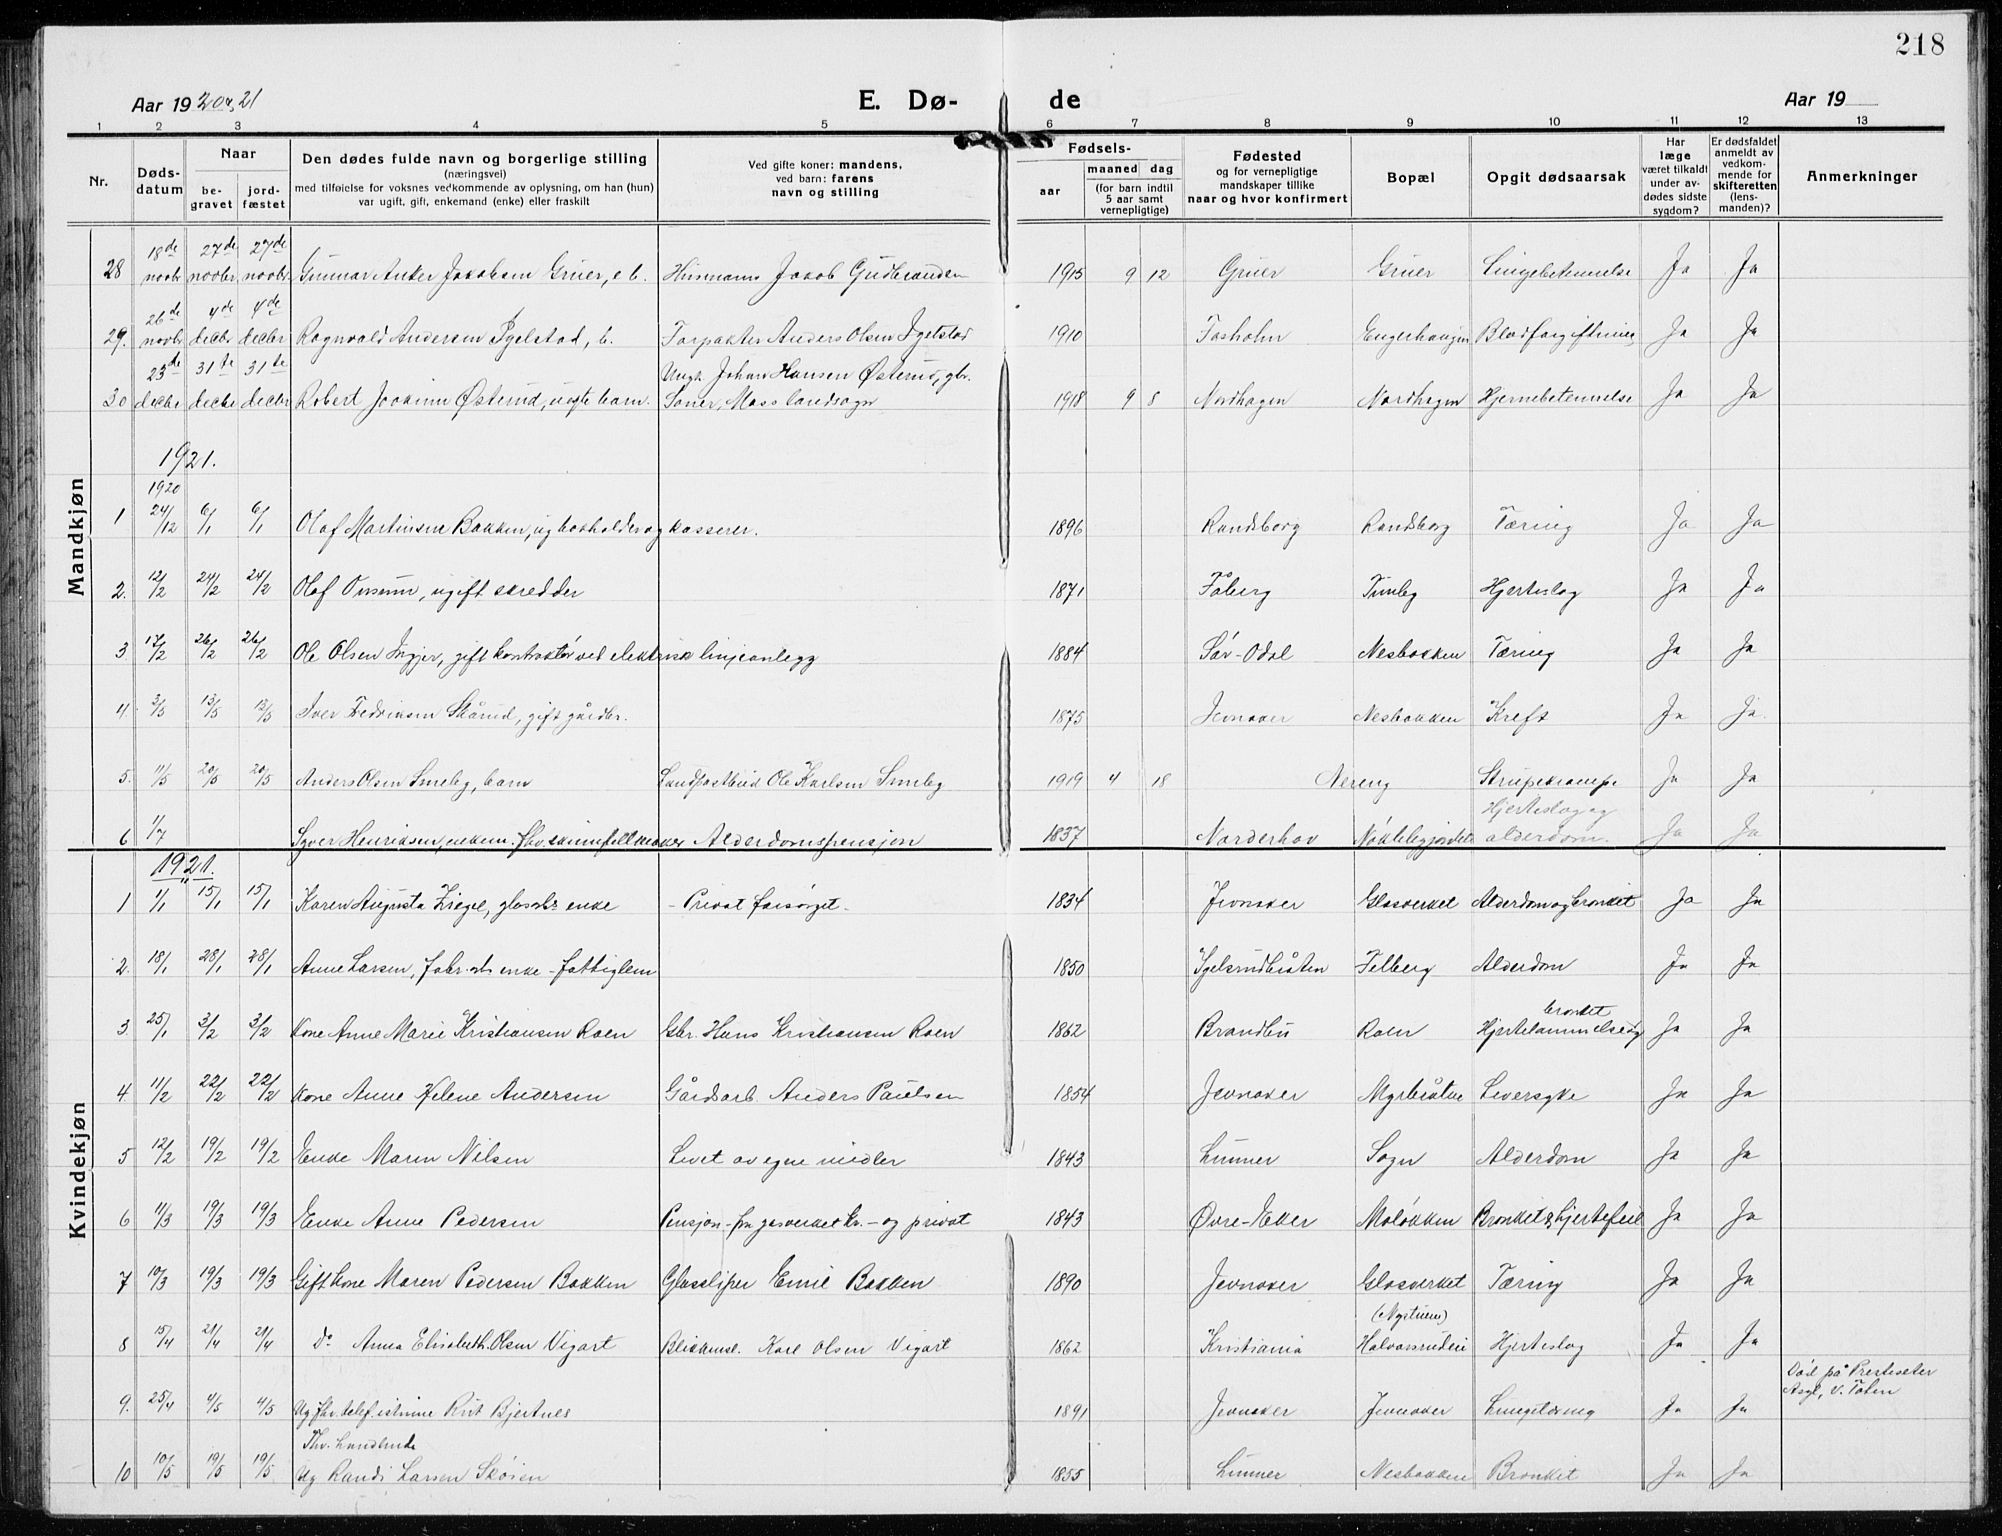 218
Aar 1920 og 21
E. Dø-
de
Aar 19
1 2 3 4 5 6 7 8 9 10 11 12 13
Nr.
Døds-
datum
Naar
be-
gravet
jord-
fæstet
Den dødes fulde navn og borgerlige stilling
(næringsvei)
med tilføielse for voksnes vedkommende av oplysning, om han (hun)
var ugift, gift, enkemand (enke) eller fraskilt
Ved gifte koner: mandens,
ved barn: farens
navn og stilling
Fødsels-
aar
maaned dag
(for barn indtil
5 aar samt
vernepligtige)
Fødested
og for vernepligtige
mandskaper tillike
naar og hvor konfirmert
Bopæl
Opgit dødsaarsak
Har
læge
været tilkaldt
under av-
dødes sidste
sygdom?
Er dødsfaldet
anmeldt av
vedkom-
mende for
skifteretten
(lens-
manden)?
Anmerkninger
Mandkjøn
28 18de novbr 27de novbr 27de novbr. Gunnar Anker Jakobsen Gruer, e b. Husmann Jakob Gudbrandsen 1915 9 12 Gruer Gruer Lungebetennelse Ja Ja
29. 26de novbr 4de decbr 4de decbr Ragnvald Andersen Igelstad, b. Forpakter Anders Olsen Igelstad 1910 Fosholm Engerhaugen Blodforgiftning Ja Ja
30 23de decbr 31te decbr 31te decbr Robert Joakim Østerud, uegte barn. Ungk. Johan Hansen Østerud, gbr.
Soner, Moss landsogn 1918 9 8 Nordhagen Nordhagen Hjernebetennelse Ja Ja
1921.
1920
1 24/12 6/1 6/1 Olaf Martinsen Bakken, ug bokholder og kasserer. 1896 Randsborg Randsborg Tæring Ja Ja
2. 12/2 24/2 24/2 Olaf, ugift skredder 1871 Fåberg Hjerteslag Ja Ja
3 17/2 26/2 26/2 Ole Olsen Ingjer, gift kontraktör ved elektrisk linjeanlegg 1884 Sør-Odal Nesbakken Tæring Ja Ja
4. 3/5 13/5 13/5 Iver Fredriksen Skårud, gift gårdbr. 1875 Jevnaker Nesbakken Kreft Ja Ja
5. 11/5 20/5 20/5 Anders Olsen Smeby, barn Landpostbud Ole Karlsen Smeby 1919 4 18 Nereng Strupekrampe Ja Ja
6 1/7 Syver Henriksen, enkem. fhv. skinnfellmaker Alderdomspensjon 1837 Norderhov Hjerteslag og
alderdom. Ja Ja
Kvindekjøn
1921.
1 1/1 15/1 15/1 Karen Augusta Ziegel, glasarb. enke - Privat forsørget - 1834 Jevnaker Glasverket Alderdom og bronkit Ja Ja
2. 18/1 28/1 28/1 Anne Larsen, fabr. arb enke - fattiglem 1850 Igelsrudbråten Felberg Alderdom Ja Ja
3 25/1 3/2 3/2 Kone Anne Marie Kristiansen Roen Gbr. Hans Kristiansen Roen 1862 Brandbu Roen bronket
Hjertelammelse og Ja Ja
4. 11/2 22/2 22/2 Kone Anne Helene Andersen Gårdsarb. Anders Paulsen 1854 Jevnaker Myrbråten Leversyke Ja Ja
5 12/2 19/2 19/2 Enke Maren Nilsen Levet av egne midler 1843 Lunner Sogn Alderdom Ja Ja
6 11/3 19/3 19/3 Enke Anne Pedersen Pensjon - fra gasverket Kr. - og privat 1843 Øvre-Eker Moløkken Bronkit & hjertefeil Ja Ja
7 10/3 19/3 19/3 Gift Kone Maren Pedersen Bakken Glassliper Emil Bakken 1890 Jevnaker Glasverket Tæring Ja Ja
8 15/4 21/4 21/4 Do Anna Elisabeth Olsen Vigart Blikkensl. Karl Olsen Vigart 1862 Kristiania (Nystuen)
Halvorsrudeie Hjerteslag Ja Ja
9. 25/4 4/5 4/5 Ug fhv. telef. istinne Rut Bjertnes 1891 Jevnaker Jevnaker Lungetæring Ja Ja Død på Presteseter
V. Toten
10 10/5 19/5 19/5 Fhv.
Ug Randi Larsen Skøien 1855 Lunner Nesbakken Bronkit Ja Ja